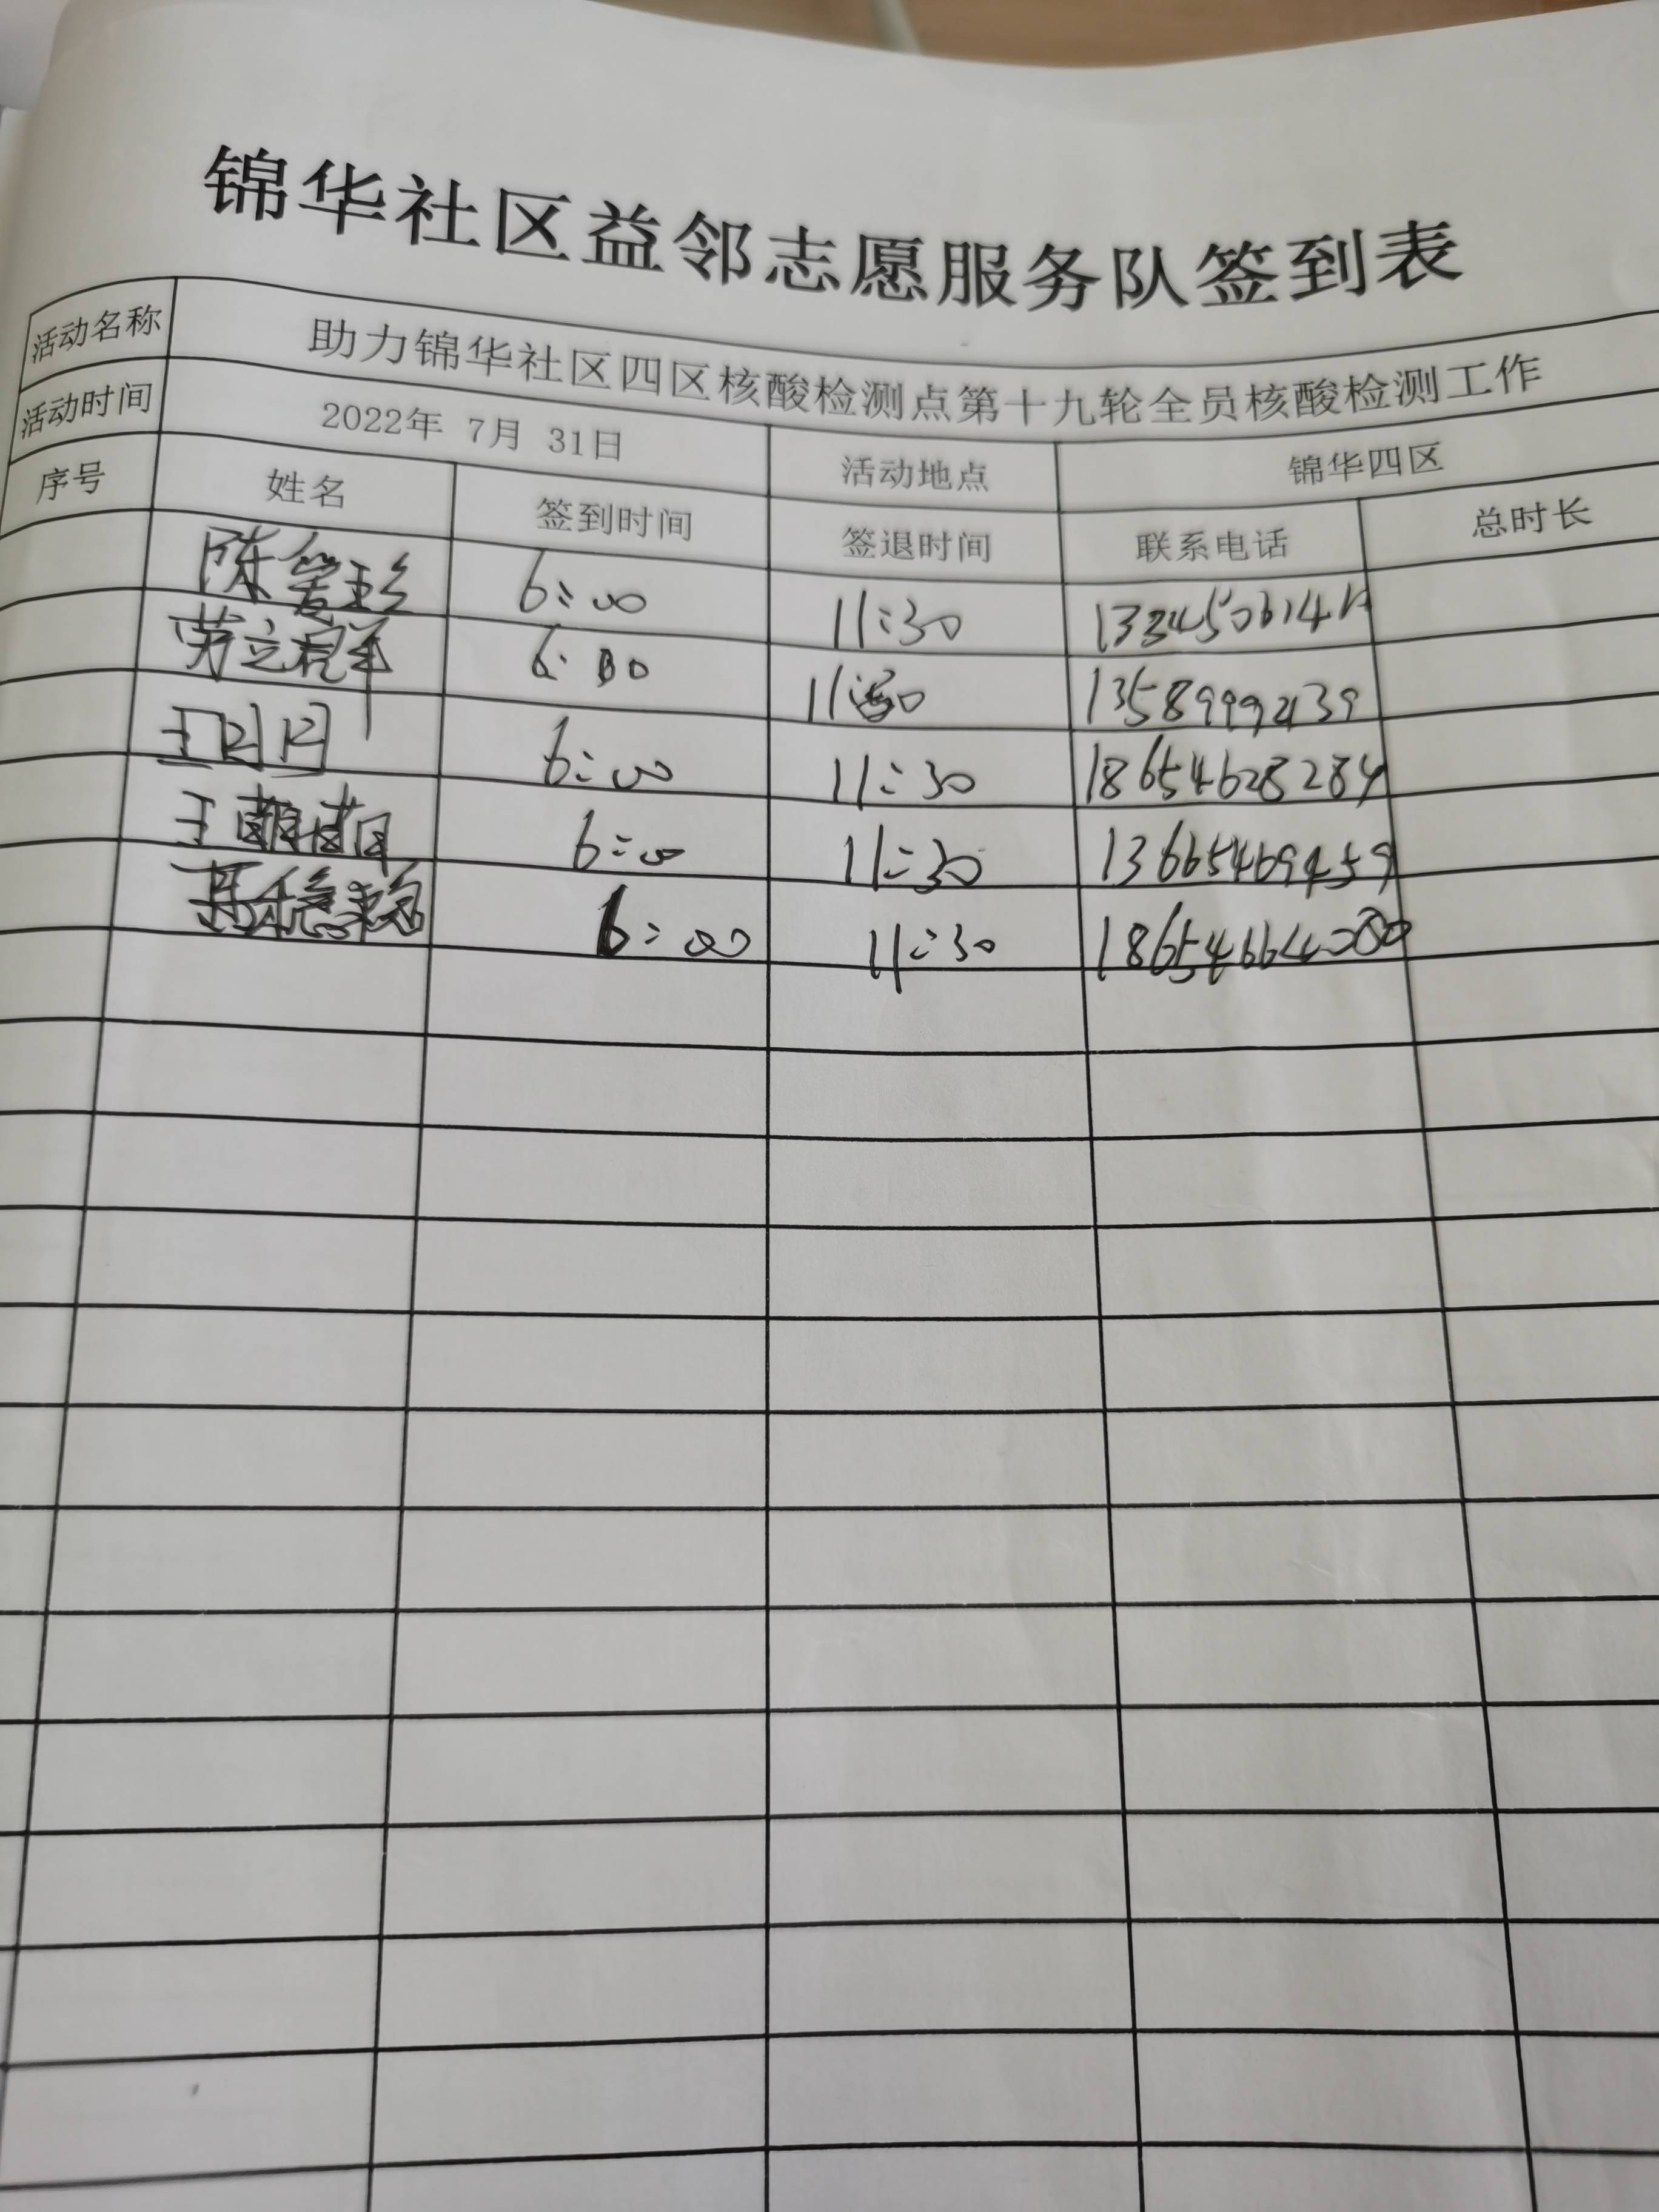 锦华社区益邻志愿服务队签到表
活动名称 助力锦华社区四区核酸检测点第十九轮全员核酸检测工作
活动时间 2022年 7月 31日 活动地点 锦华四区
序号 姓名 签到时间 签退时间 联系电话 总时长
陈爱珍 6:00 11:30
6:00 11:30 13589992139
6:00 11:30 18654628284
王 6:00 11:30 13665469459
6:00 11:30